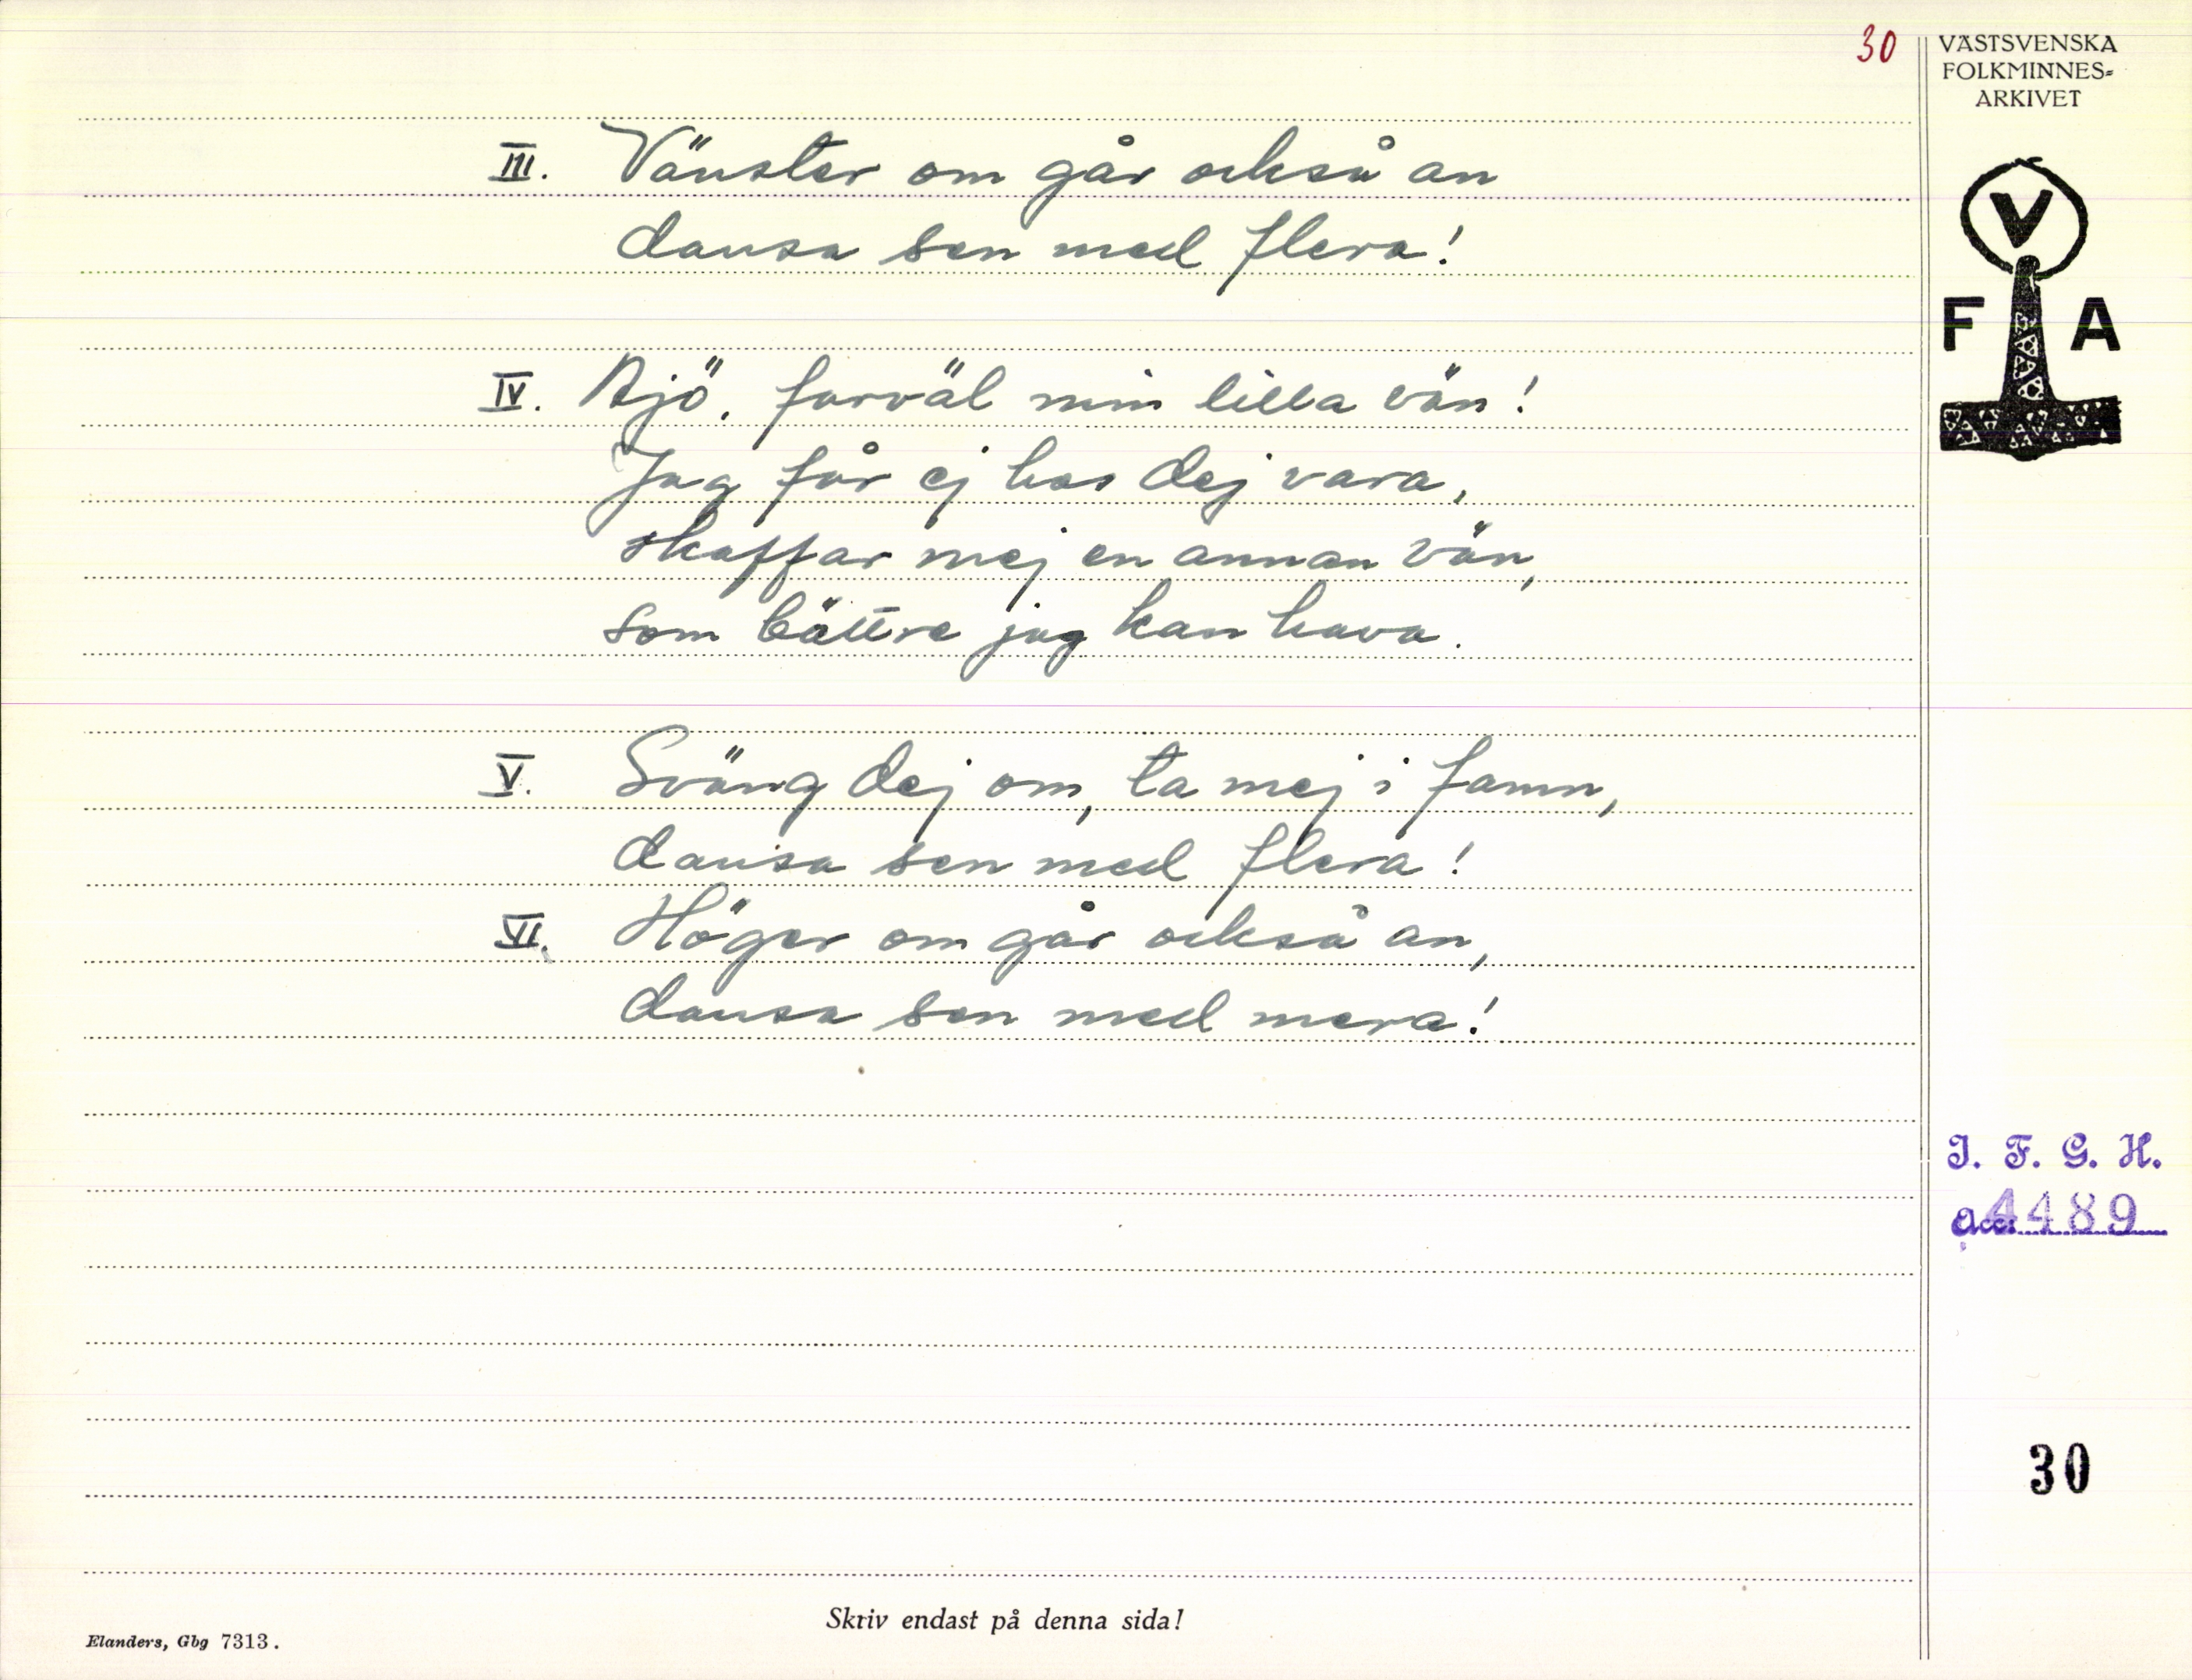 30
VÄSTSVENSKA
FOLKMINNES-
ARKIVET
V
F A
III. Vänster om går också an
dansa sen med flera!
IV. Ajö, farväl min lilla vän!
Jag får ej hos dej vara,
skaffar mej en annan vän,
som bättre jag kan hava.
V. Sväng dej om, ta mej i famn,
dansa sen med flera!
VI. Höger om går också an,
dansa sen med mera!
I. F. G. H.
Acc. 4489
30
Skriv endast på denna sida!
Elanders, Gbg 7313.